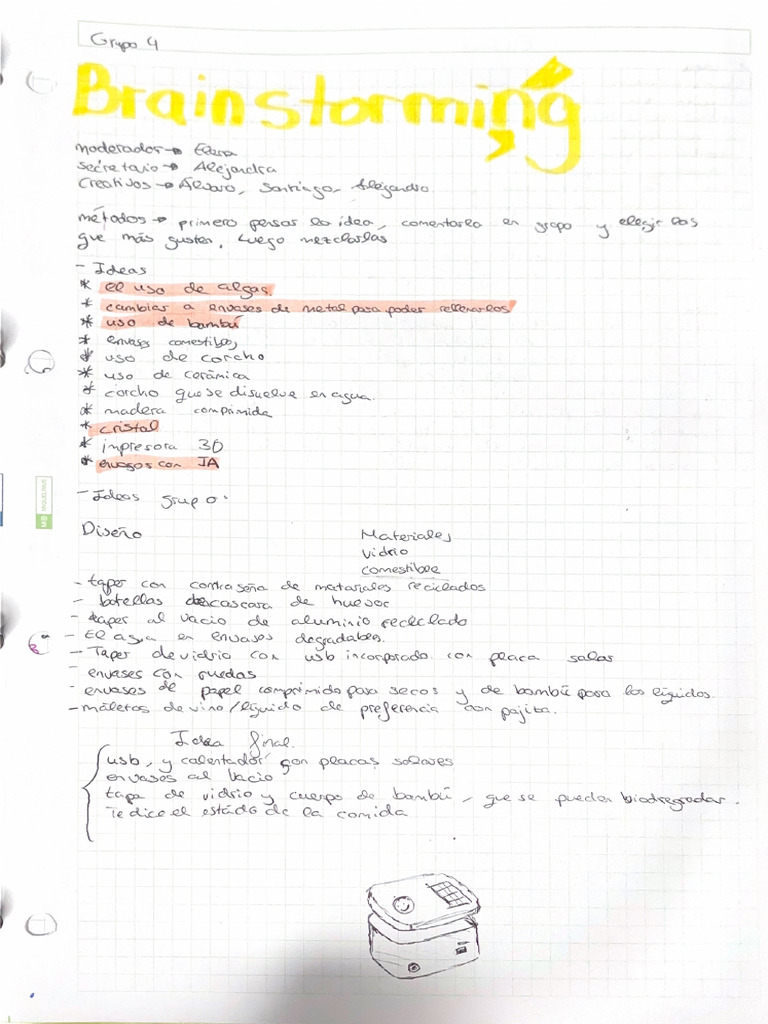 Grupo 4
Brainstorming
moderador → Elena
secretario → Alejandra
Creativos → Álvaro, Santiago, Alejandro.
métodos → primero pensar la idea, comentarla en grupo y elegir las
que más gusten, luego mezclarlas
- Ideas
* el uso de algas.
* cambiar a envases de metal para poder rellenarlos
* uso de bambú
* envases comestibles
* uso de corcho
* uso de cerámica
* corcho que se disuelve en agua.
* madera comprimida
* cristal
* impresora 3D
* envases con IA
- Ideas grupo:
Diseño Materiales
vidrio
comestible
- taper con contraseña de materiales reciclados
- botellas de cascara de huevor
- taper al vacio de aluminio reciclado
- El agua en envases degradables.
- Taper de vidrio con usb incorporado con placa solar
- envases con ruedas
- envases de papel comprimido para secos y de bambú para los líquidos.
- maletas de vino/líquido de preferencia con pajita.
Idea final.
usb, y calentador con placas solares
envases al vacio
tapa de vidrio y cuerpo de bambú, que se pueden biodregradar.
Te dice el estado de la comida